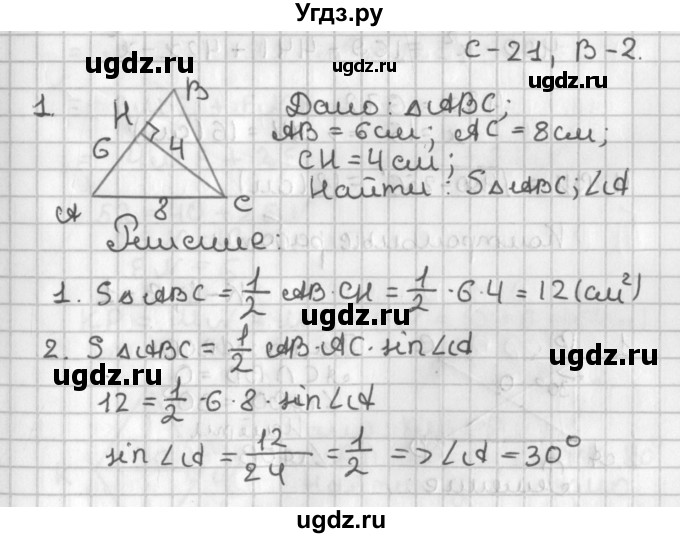 Угдз.ру
С-21, В-2.
ugdz.ru ugdz.ru ugdz.ru
1. Дано: △ABC;
AB = 6см; AC = 8см;
CH = 4см;
Найти: S△ABC; ∠A
B H 6 4 A 8 C
Решение:
1. S△ABC = 1/2 AB·CH = 1/2 ·6·4 = 12(см²)
ugdz.ru ugdz.ru
2. S△ABC = 1/2 AB·AC·sin∠A
ugdz.ru ugdz.ru
12 = 1/2 ·6·8·sin∠A
sin∠A = 12/24 = 1/2 => ∠A = 30°
ugdz.ru ugdz.ru ugdz.ru